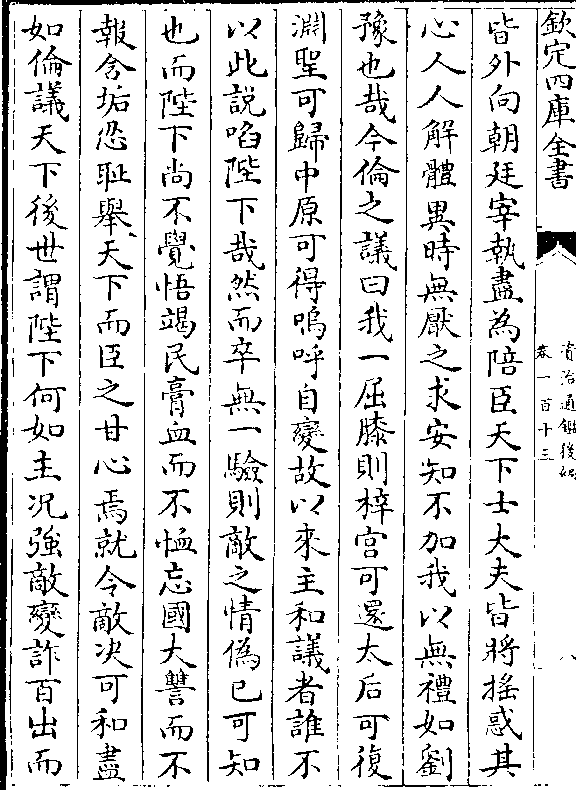 欽定四庫全書
資治通鑑後編
卷一百十三
八
皆外向朝廷宰執盡為陪臣天下士大夫皆將揺惑其
心人人解體異時無厭之求安知不加我以無禮如劉
豫也哉今倫之議曰我一屈膝則梓宫可還太后可復
淵聖可歸中原可得嗚呼自變故以來主和議者誰不
以此説啗陛下哉然而卒無一驗則敵之情偽已可知
也而陛下尚不覺悟竭民膏血而不恤忘國大讐而不
報含垢忍耻舉天下而臣之甘心焉就令敵决可和盡
如倫議天下後世謂陛下何如主况強敵變詐百出而